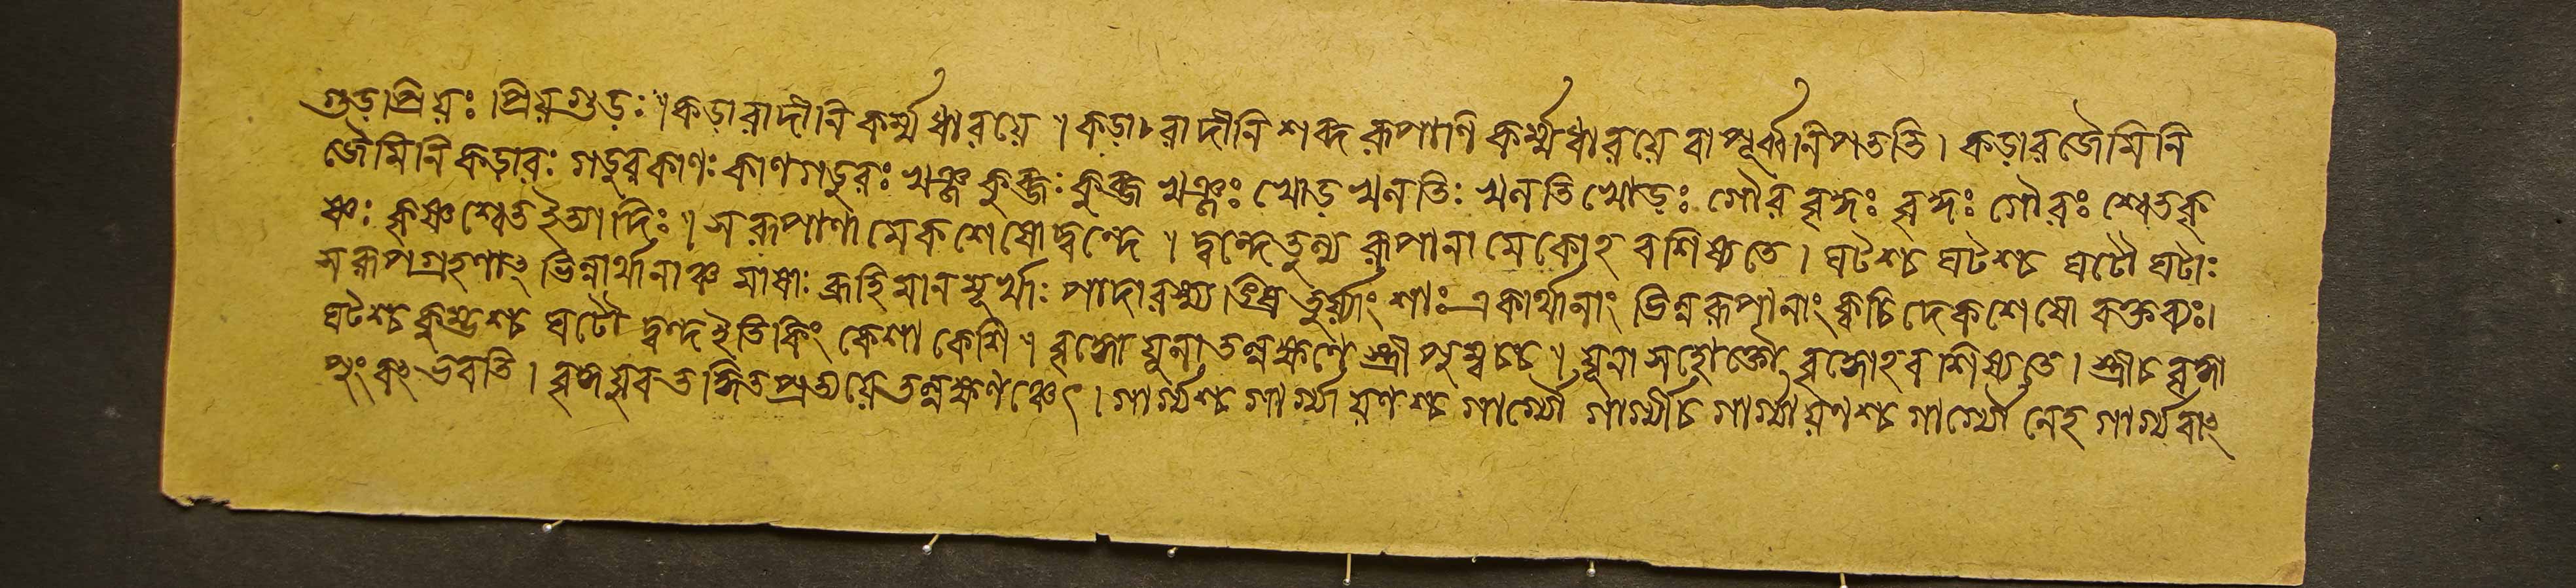 গুড়প্রিয়ঃ প্রিয়গুড়ঃ ৷ কড়ারাদীনি কর্ম্মধারয়ে ৷ কড়ারাদীনি শব্দরূপাণি কর্ম্মধারয়ে বা পূর্ব্বনিপতন্তি ৷ কড়ারজৈমিনি
জৈমিনিকড়ারঃ গড়ুরকাণঃ কাণগড়ুরঃ খঞ্জকুব্জঃ কুব্জখঞ্জঃ খোড়খনতিঃ খনতিখোড়ঃ গৌরবৃদ্ধঃ বৃদ্ধঃ গৌরঃ শ্বেতকৃ
ষ্ণঃ কৃষ্ণশ্বেত ইত্যাদিঃ ৷ সরূপাণামেকশেষো দ্বন্দে ৷ দ্বন্দে তুল্যরূপানামেকোঽবশিষ্যতে ৷ ঘটশ্চ ঘটশ্চ ঘটৌ ঘটাঃ
সরূপগ্রহণাৎ ভিন্নার্থানাঞ্চ মাষাঃ ব্রীহিমানমূর্খাঃ পাদা একার্থানাং ভিন্নরূপানাং ক্বচিদেকশেষো বক্তব্যঃ৷
ঘটশ্চ কুম্ভশ্চ ঘটৌ দ্বন্দ ইতি কিং কেশাকেশি ৷ বৃদ্ধো যূনা তল্লক্ষণে স্ত্রী পুম্বচ্চ ৷ যূনা সহোক্তৌ বৃদ্ধোঽবশিষ্যতে ৷ স্ত্রী চ বৃদ্ধা
পুংবৎ ভবতি ৷ বৃদ্ধযুবতদ্ধিতপ্রত্যয়ে তল্লক্ষণঞ্চেৎ ৷ গার্গ্যশ্চ গার্গ্যায়ণশ্চ গার্গ্যৌ গার্গী চ গার্গ্যায়ণশ্চ গার্গ্যৌ নেহ গার্গ্যবাৎ